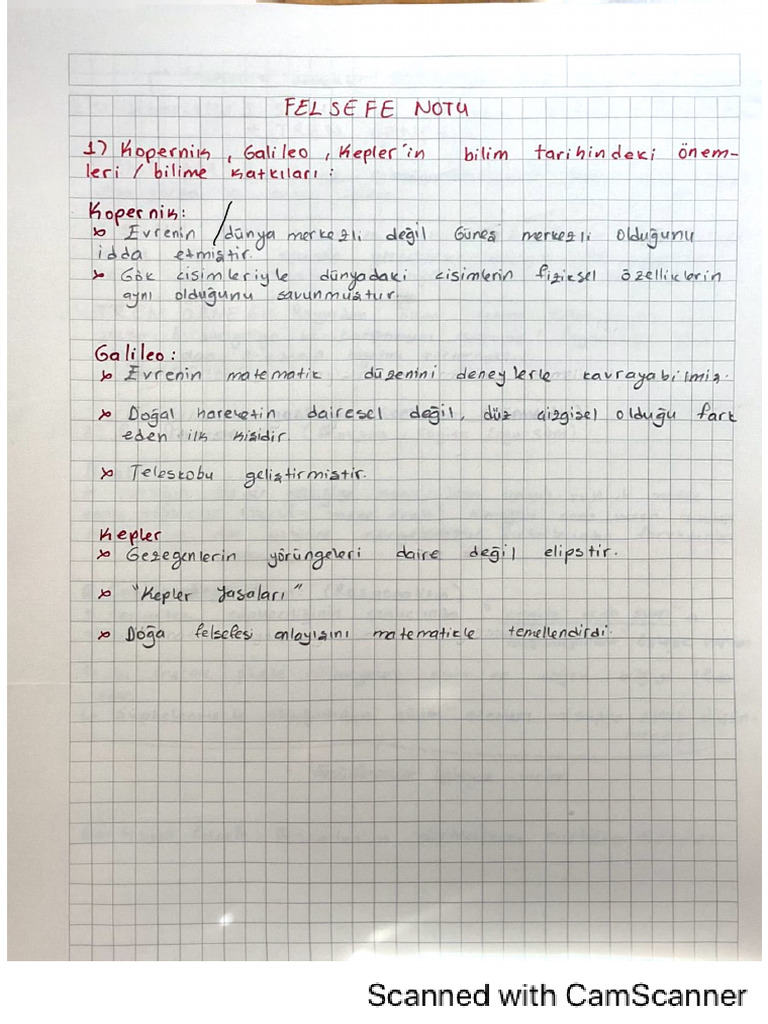 FELSEFE NOTU
1) Kopernik, Galileo, Kepler'in bilim tarihindeki önem-
leri / bilime katkıları:
Kopernik:
Evrenin / dünya merkezli değil Güneş merkezli olduğunu
idda etmiştir.
Gök cisimleriyle dünyadaki cisimlerin fiziksel özelliklerin
aynı olduğunu savunmuştur.
Galileo:
Evrenin matematik düzenini deneylerle kavrayabilmiş.
Doğal hareketin dairesel değil, düz çizgisel olduğu fark
eden ilk kişidir.
Teleskobu geliştirmiştir.
Kepler
Gezegenlerin yörüngeleri daire değil elipstir.
"Kepler Yasaları"
Doğa felsefesi anlayışını matematikle temellendirdi.
Scanned with CamScanner